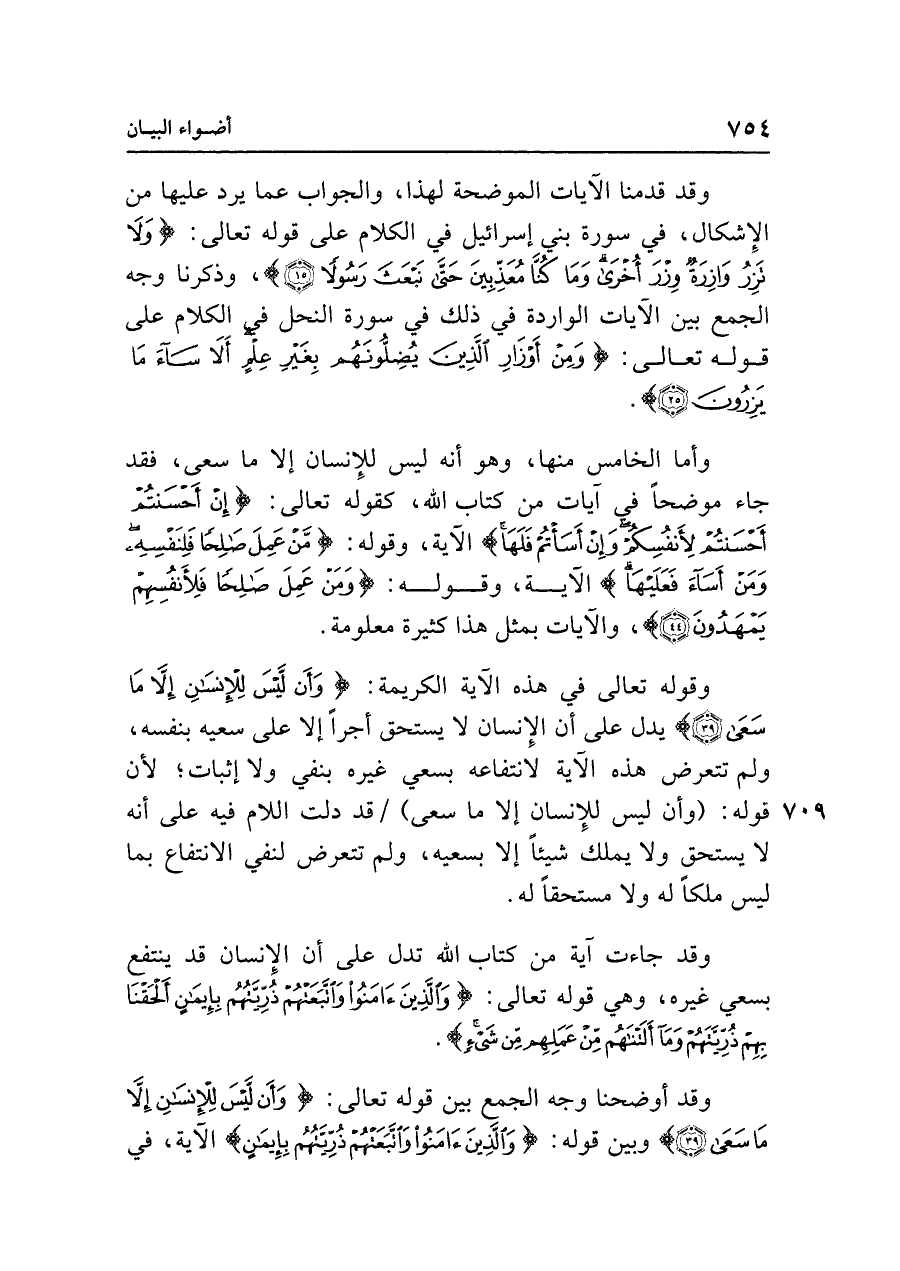 ٧٥٤ أضـواء البيـان
وقد قدمنا الآيات الموضحة لهذا، والجواب عما يرد عليها من
الإِشكال، في سورة بني إسرائيل في الكلام على قوله تعالى: ﴿ وَلَا
نَزِرُ وَازِرَةٌ وِزْرَ أُخْرَىٰ وَمَا كُنَّا مُعَذِّبِينَ حَتَّىٰ نَبْعَثَ رَسُولًا ١٥﴾، وذكرنا وجه
الجمع بين الآيات الواردة في ذلك في سورة النحل في الكلام على
قـولـه تعـالـى: ﴿ وَمِنْ أَوْزَارِ ٱلَّذِينَ يُضِلُّونَهُم بِغَيْرِ عِلْمٍ أَلَا سَآءَ مَا
يَزِرُونَ ٢٥﴾.
وأما الخامس منها، وهو أنه ليس للإِنسان إلا ما سعى، فقد
جاء موضحاً في آيات من كتاب الله، كقوله تعالى: ﴿ إِنْ أَحْسَنتُمْ
أَحْسَنتُمْ لِأَنفُسِكُمْ وَإِنْ أَسَأْتُمْ فَلَهَا﴾ الآية، وقوله: ﴿ مَّنْ عَمِلَ صَٰلِحًا فَلِنَفْسِهِۦ
وَمَنْ أَسَآءَ فَعَلَيْهَا ﴾ الآيـــة، وقـــولـــه: ﴿وَمَنْ عَمِلَ صَٰلِحًا فَلِأَنفُسِهِمْ
يَمْهَدُونَ ٤٤﴾، والآيات بمثل هذا كثيرة معلومة.
وقوله تعالى في هذه الآية الكريمة: ﴿ وَأَن لَّيْسَ لِلْإِنسَٰنِ إِلَّا مَا
سَعَىٰ ٣٩﴾ يدل على أن الإِنسان لا يستحق أجراً إلا على سعيه بنفسه،
ولم تتعرض هذه الآية لانتفاعه بسعي غيره بنفي ولا إثبات؛ لأن
٧٠٩ قوله: (وأن ليس للإِنسان إلا ما سعى) / قد دلت اللام فيه على أنه
لا يستحق ولا يملك شيئاً إلا بسعيه، ولم تتعرض لنفي الانتفاع بما
ليس ملكاً له ولا مستحقاً له.
وقد جاءت آية من كتاب الله تدل على أن الإِنسان قد ينتفع
بسعي غيره، وهي قوله تعالى: ﴿ وَٱلَّذِينَ ءَامَنُوا۟ وَٱتَّبَعَتْهُمْ ذُرِّيَّتُهُم بِإِيمَٰنٍ أَلْحَقْنَا
بِهِمْ ذُرِّيَّتَهُمْ وَمَآ أَلَتْنَٰهُم مِّنْ عَمَلِهِم مِّن شَىْءٍ﴾.
وقد أوضحنا وجه الجمع بين قوله تعالى: ﴿ وَأَن لَّيْسَ لِلْإِنسَٰنِ إِلَّا
مَا سَعَىٰ ٣٩﴾ وبين قوله: ﴿ وَٱلَّذِينَ ءَامَنُوا۟ وَٱتَّبَعَتْهُمْ ذُرِّيَّتُهُم بِإِيمَٰنٍ﴾ الآية، في